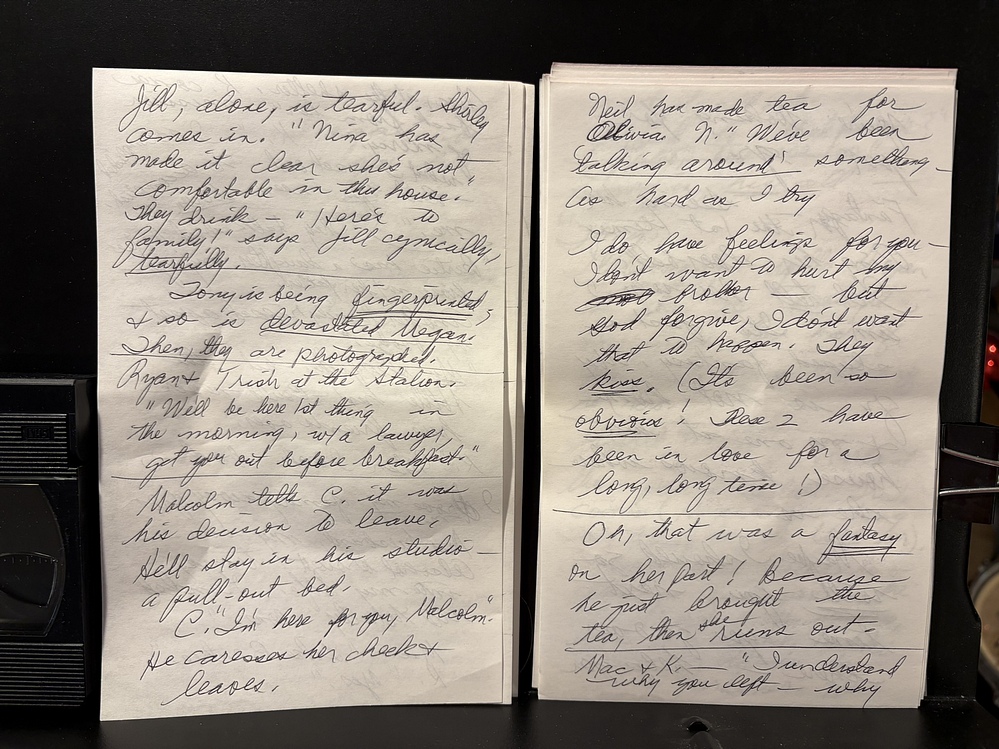 Jill, alone, is tearful. Shirley
comes in. "Nina has
made it clear she's not
comfortable in this house."
They drink – "Here's to
family!" says Jill cynically,
tearfully.
Tony is being fingerprinted,
& so is devastated Megan.
Then, they are photographed.
Ryan & Trish at the station.
"We'll be here 1st thing in
the morning, w/a lawyer,
get you out before breakfast."
Malcolm tells C. it was
his decision to leave.
He'll stay in his studio –
a pull-out bed.
C. "I'm here for you, Malcolm."
He caresses her cheek &
leaves.
Neil has made tea for
Olivia. N. "We've been
'talking around' something –
as hard as I try
I do have feelings for you –
I don't want to hurt my
brother – but
God forgive, I don't want
that to happen. They
kiss. (It's been so
obvious! These 2 have
been in love for a
long, long time!)
Oh, that was a fantasy
on her part! Because
he just brought the
tea, then she runs out.
Mac & K. – "I understand
why you left – why